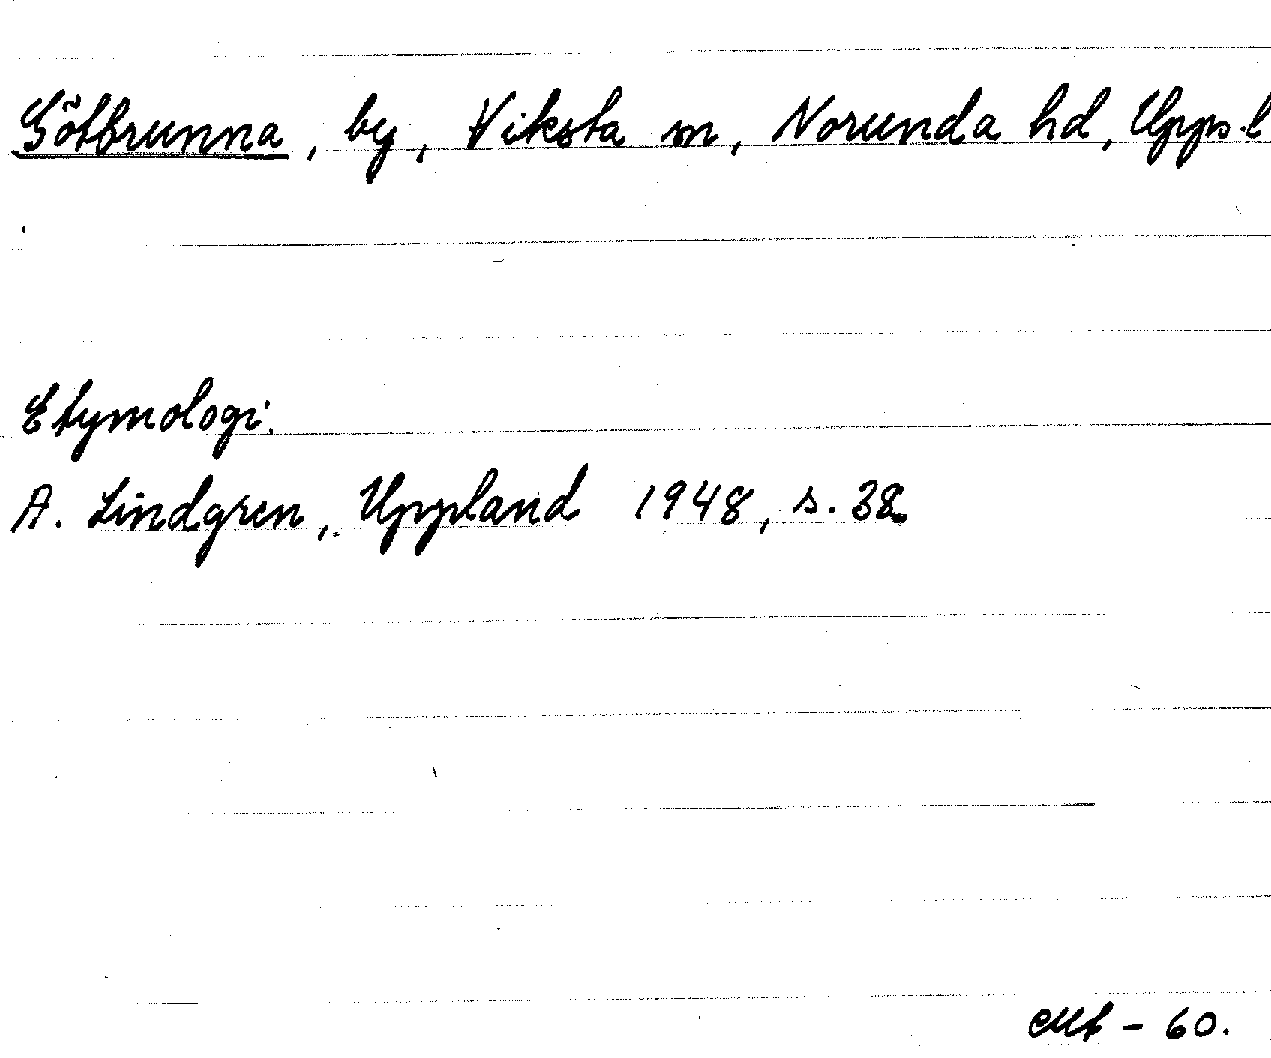 Götbrunna, by, Viksta sn, Norunda hd, Upps. l
Etymologi.
A. Lindgren, Uppland 1948, s. 38
- 60.